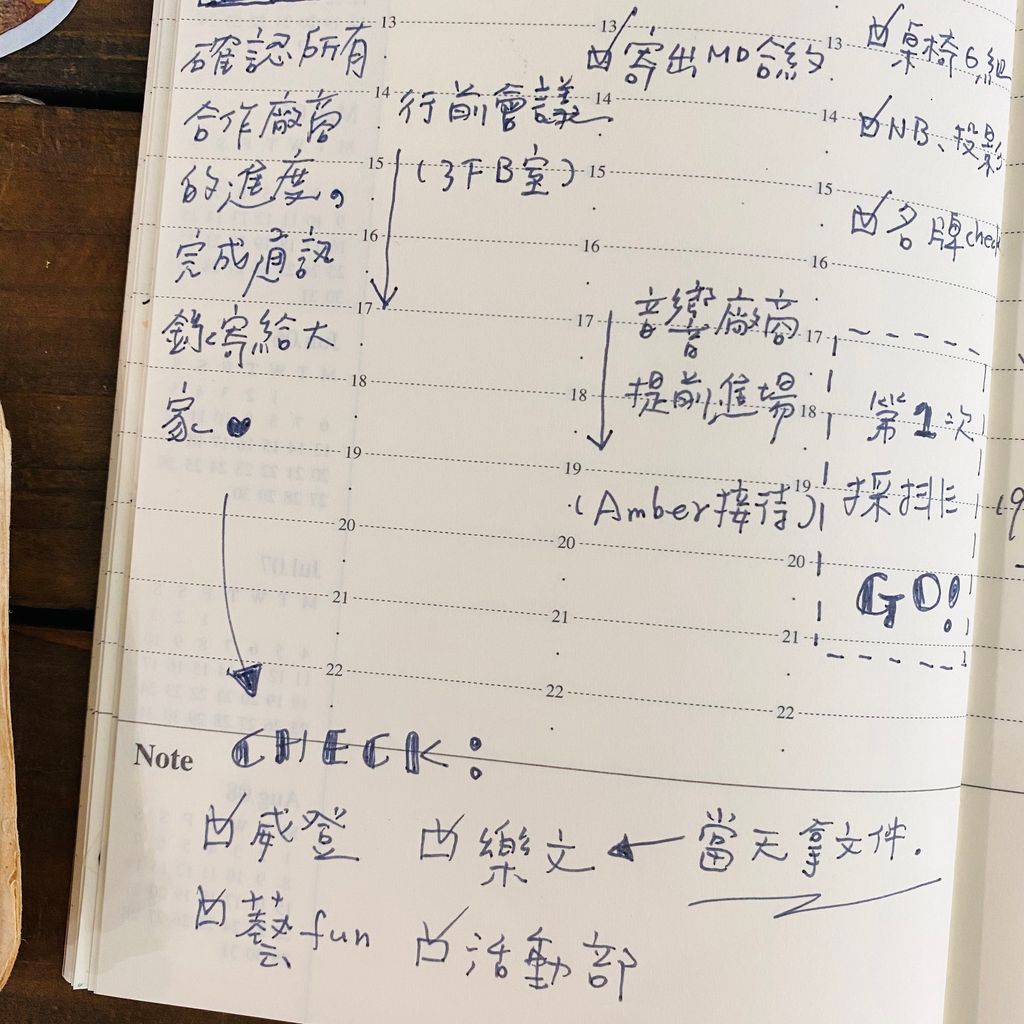 確認所有
合作廠商
的進度。
完成通訊
錄寄給大
家。
13
14
15
16
17
18
19
20
21
22
行前會議
(3F B室)
13
14
15
16
17
18
19
20
21
22
寄出MD合約
音響廠商
提前進場
(Amber接待)
13
14
15
16
17
18
19
20
21
22
桌椅6組
NB、投影
名牌check
第1次
採排
GO!
Note
CHECK:
威登
樂文
當天拿文件.
藝fun
活動部